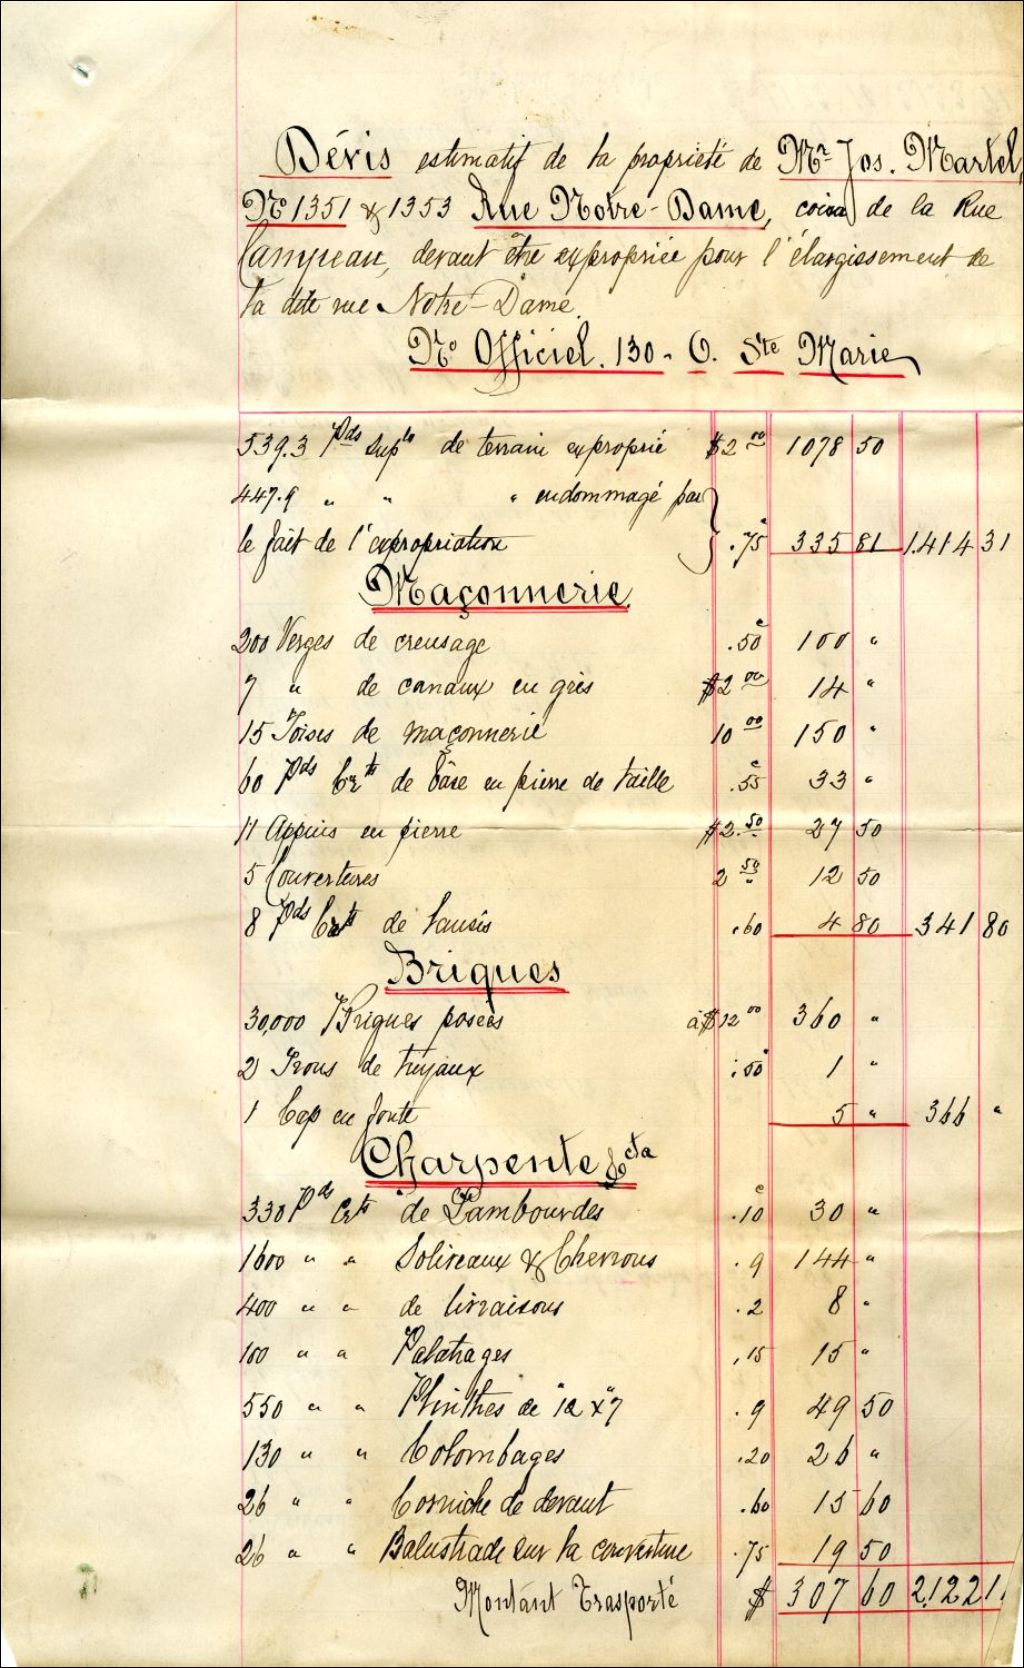 Dévis estimatif de la propriété de Mr Jos. Martel,
No 1351 & 1353 Rue Notre-Dame, coin de la Rue
Campeau, devant être expropriée pour l'élargissement de
la dite rue Notre-Dame.
No Officiel. 130 - Q. Ste Marie
539.3 Pds Supls de terrain exproprié $2 00 1078 50
447.9 " " " endommagé par
le fait de l'expropriation .75 335 81 1.414 31
Maçonnerie
200 Verges de creusage .50c 100 "
7 " de canaux en grès $2 00 14 "
15 Toises de maçonnerie 10 00 150 "
60 Pds Crts de bâse en pierre de taille .55c 33 "
11 Appuis en pierre $2.50 27 50
5 Couvertures 2 50 12 50
8 Pds Crts de .60 4 80 341 80
Briques
30,000 Briques posées à $12 00 360 "
2 Trous de tuyaux .50 1 "
1 Cap en fonte 5 " 366 "
Charpente &cta
330 Pds Crts de Lambourdes .10c 30 "
1600 " " Soliveaux & Chevrons .9 144 "
400 " " de livraisons .2 8 "
100 " " Palatrages .15 15 "
550 " " Plinthes de 12 x 7 .9 49 50
130 " " Colombages .20 26 "
26 " " Corniche de devant .60 15 60
26 " " Balustrade sur la couverture .75 19 50
Montant Trasporté $ 307 60 2.122 1